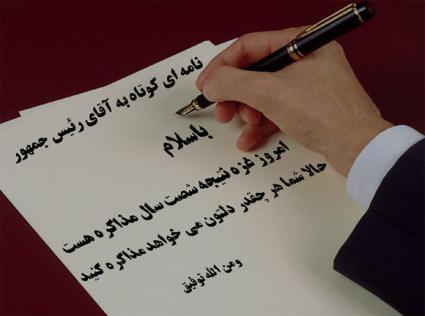 نامه ای کوتاه به آقای رئیس جمهور
باسلام
امروز غزه نتیجه شصت سال مذاکره هست
حالا شما هر چقدر دلتون می خواهد مذاکره کنید
ومن الله توفیق